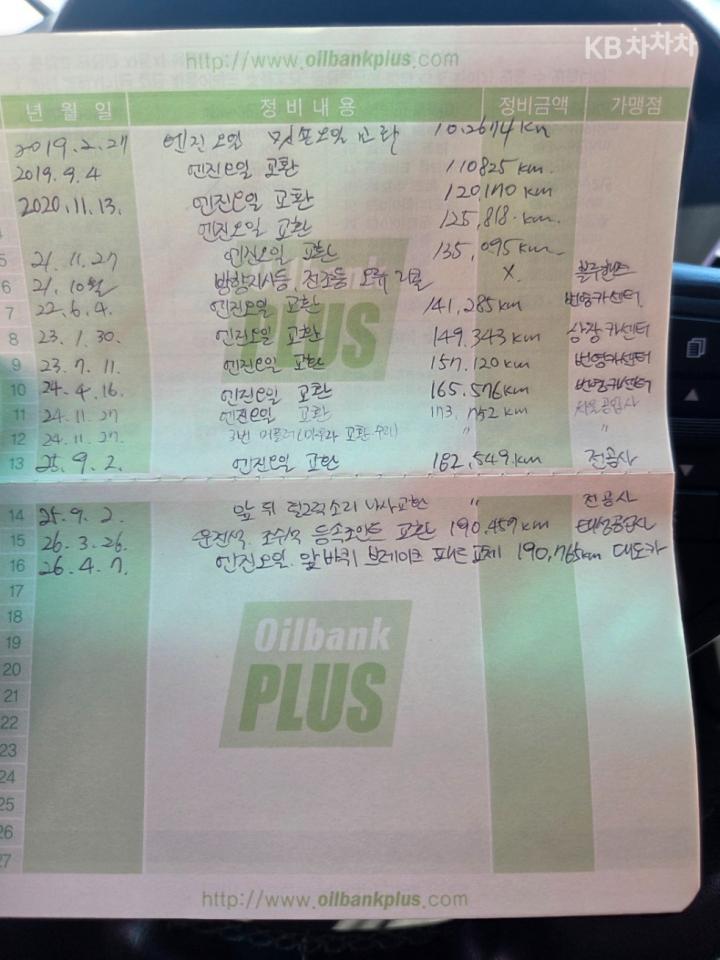 KB차차차
http://www.oilbankplus.com
년 월 일 정비내용 정비금액 가맹점
2019.2.27 엔진오일 교환 10.2674 km
2019.9.4 엔진오일 교환 110825 km.
2020.11.13. 엔진오일 교환 120,170 km
엔진오일 교환 125,818. km.
5 21.11.27 엔진오일 교환 135,095 km
6 21.10월 방향지시등, 전조등 오류 리콜 X. 블루핸즈
7 22.6.4. 엔진오일 교환 141,285 km 번영카센터
8 23.1.30. 엔진오일 교환 149,343 km 카센터
9 23.7.11. 엔진오일 교환 157,120 km 번영카센터
10 24.4.16. 엔진오일 교환 165,576 km 번영카센터
11 24.11.27 엔진오일 교환 173,752 km 공업사
12 24.11.27. 3번 머플러(마우라 교환 수리) " "
13 25.9.2. 엔진오일 교환 182,549 km 전공사
14 25.9.2. 앞 뒤 소리 교환 " 전공사
15 26.3.26. 운전석, 조수석 등속조인트 교환 190,459 km 태성공업사
16 26.4.7. 엔진오일. 앞바퀴 브레이크 패드 교체 190,765km 대도카
17
18
19
20
21
22
23
24
25
26
27
Oilbank
PLUS
http://www.oilbankplus.com